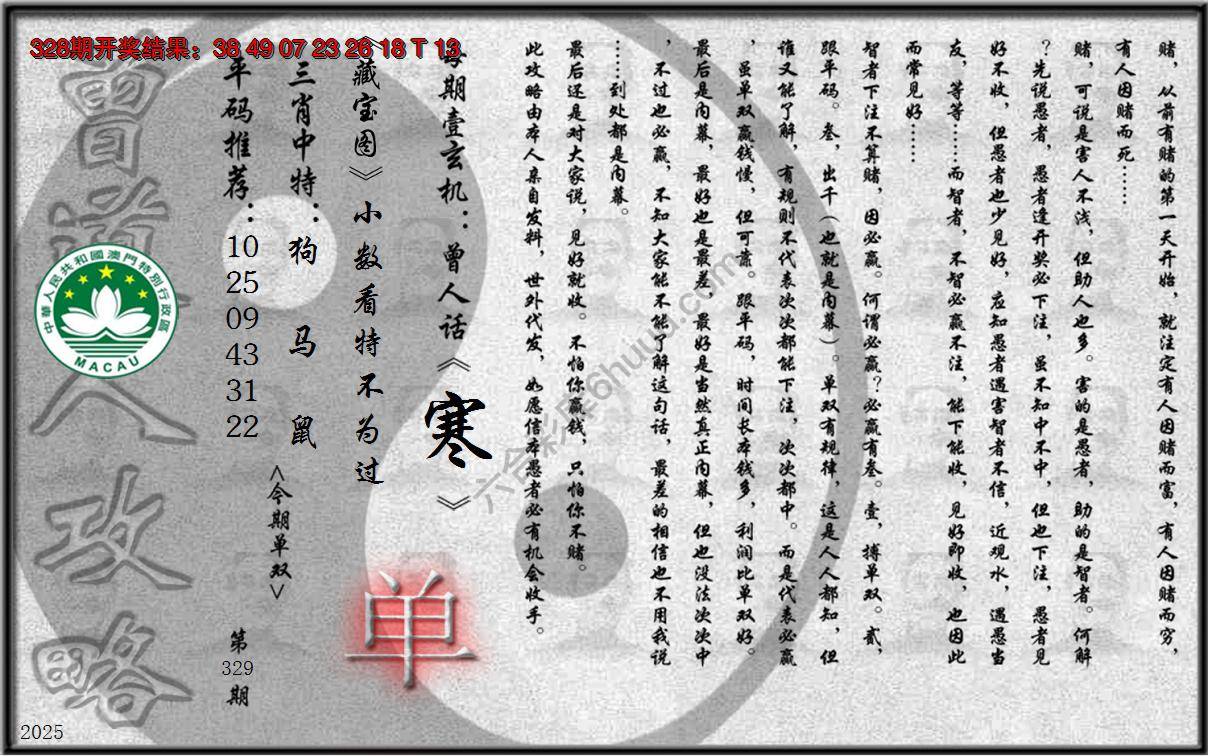 328期开奖结果：38 49 07 23 26 18 T 13
赌，从前有赌的第一天开始，就注定有人因赌而富，有人因赌而穷，
有人因赌而死……
赌，可说是害人不浅，但助人也多。害的是愚者，助的是智者。何解
？先说愚者，愚者逢开奖必下注，虽不知中不中，但也下注，愚者见
好不收，但愚者也少见好，应知愚者遇害智者不信，近观水，遇愚当
友，等等……而智者，不智必赢不注，能下能收，见好即收，也因此
而常见好……
智者下注不算赌，因必赢。何谓必赢？必赢有叁。壹，搏单双。贰，
跟平码。叁，出千（也就是内幕）。单双有规律，这是人人都知，但
谁又能了解，有规则不代表次次都能下注，次次都中。而是代表必赢
，虽单双赢钱慢，但可靠。跟平码，时间长本钱多，利润比单双好。
最后是内幕，最好也是最差，最好是当然真正内幕，但也没法次次中
，不过也必赢，不知大家能不能了解这句话，最差的相信也不用我说
……到处都是内幕。
最后还是对大家说，见好就收。不怕你赢钱，只怕你不赌。
此攻略由本人亲自发料，世外代发，如愿信本愚者必有机会收手。
每期壹玄机：曾人话《寒》
《藏宝图》小数看特不为过
三肖中特：狗 马 鼠
<今期单双>
单
平码推荐：10 25 09 43 31 22
第329期
曾道人攻略
中華人民共和國澳門特別行政區
MACAU
六合彩库6huuu.com
2025